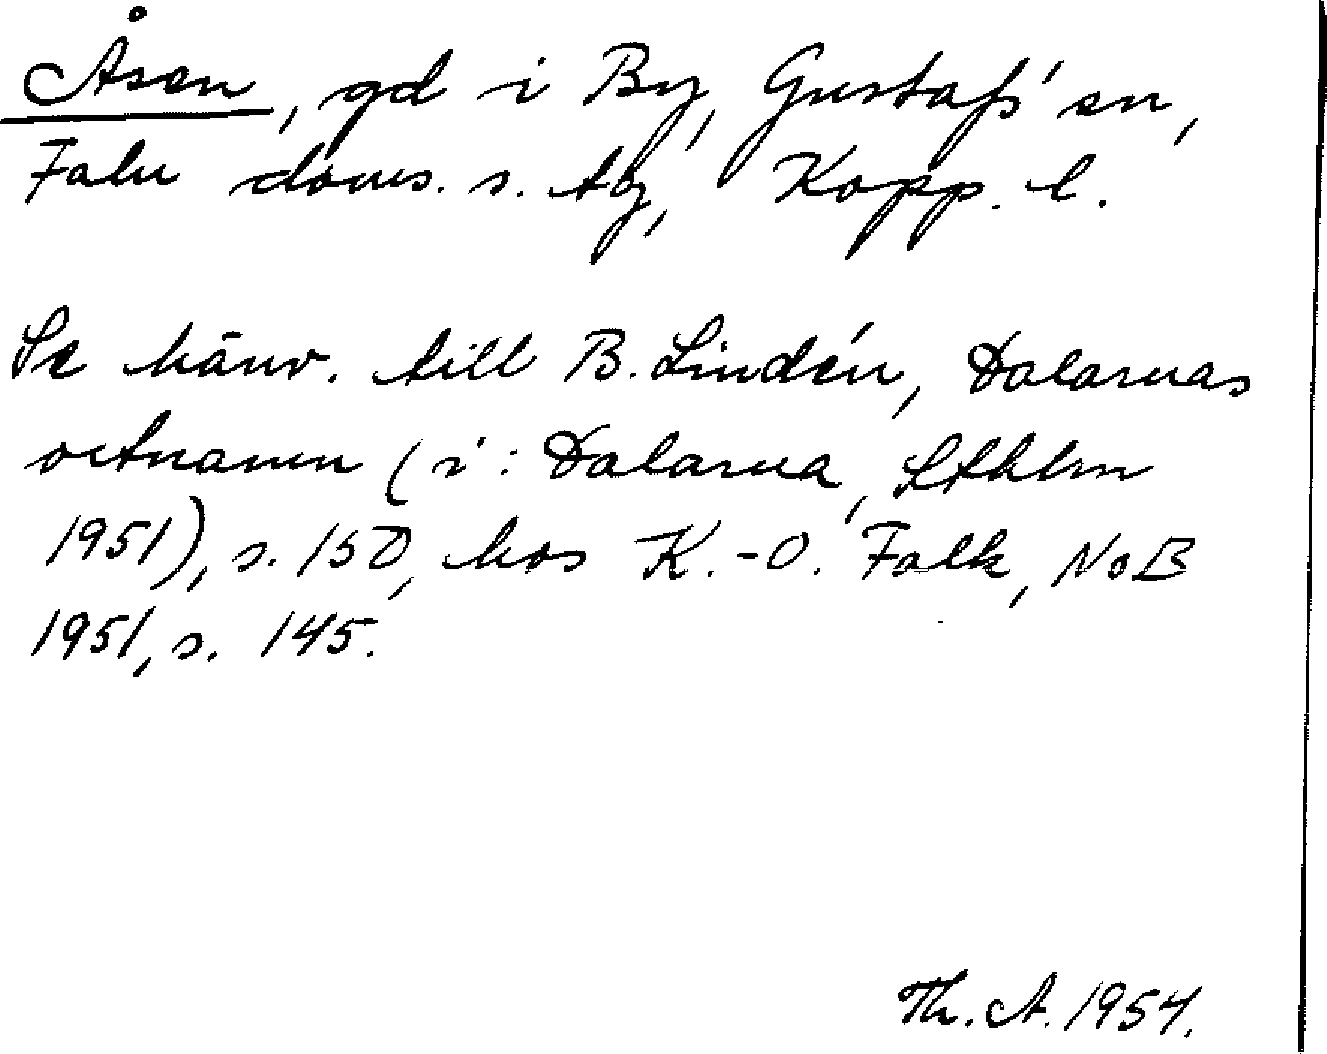 Åsen, gd i By, Gustafs' sn,
Falu doms. s. tg, Kopp. l.
Se hänv. till B. Lindén, Dalarnas
ortnamn (i: Dalarna, Sthlm
1951), s. 150, hos K.-O. Falk, NoB
1951, s. 145.
Th. A. 1954.